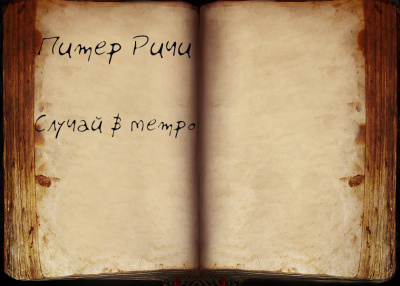 Питер Ричи
Случай в метро